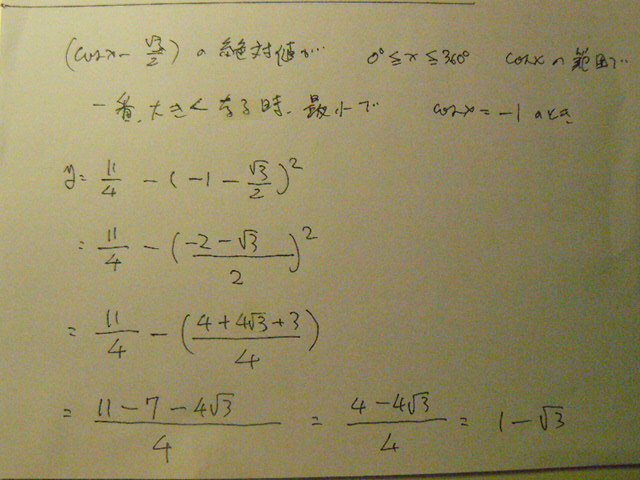 (cosx - √3/2) の絶対値が… 0° ≦ x ≦ 360° cosxの範囲で
一番、大きくなる時、最小で cosx = -1 のとき
y = 11/4 - (-1 - √3/2)²
= 11/4 - ((-2 - √3)/2)²
= 11/4 - ((4 + 4√3 + 3)/4)
= (11 - 7 - 4√3)/4 = (4 - 4√3)/4 = 1 - √3